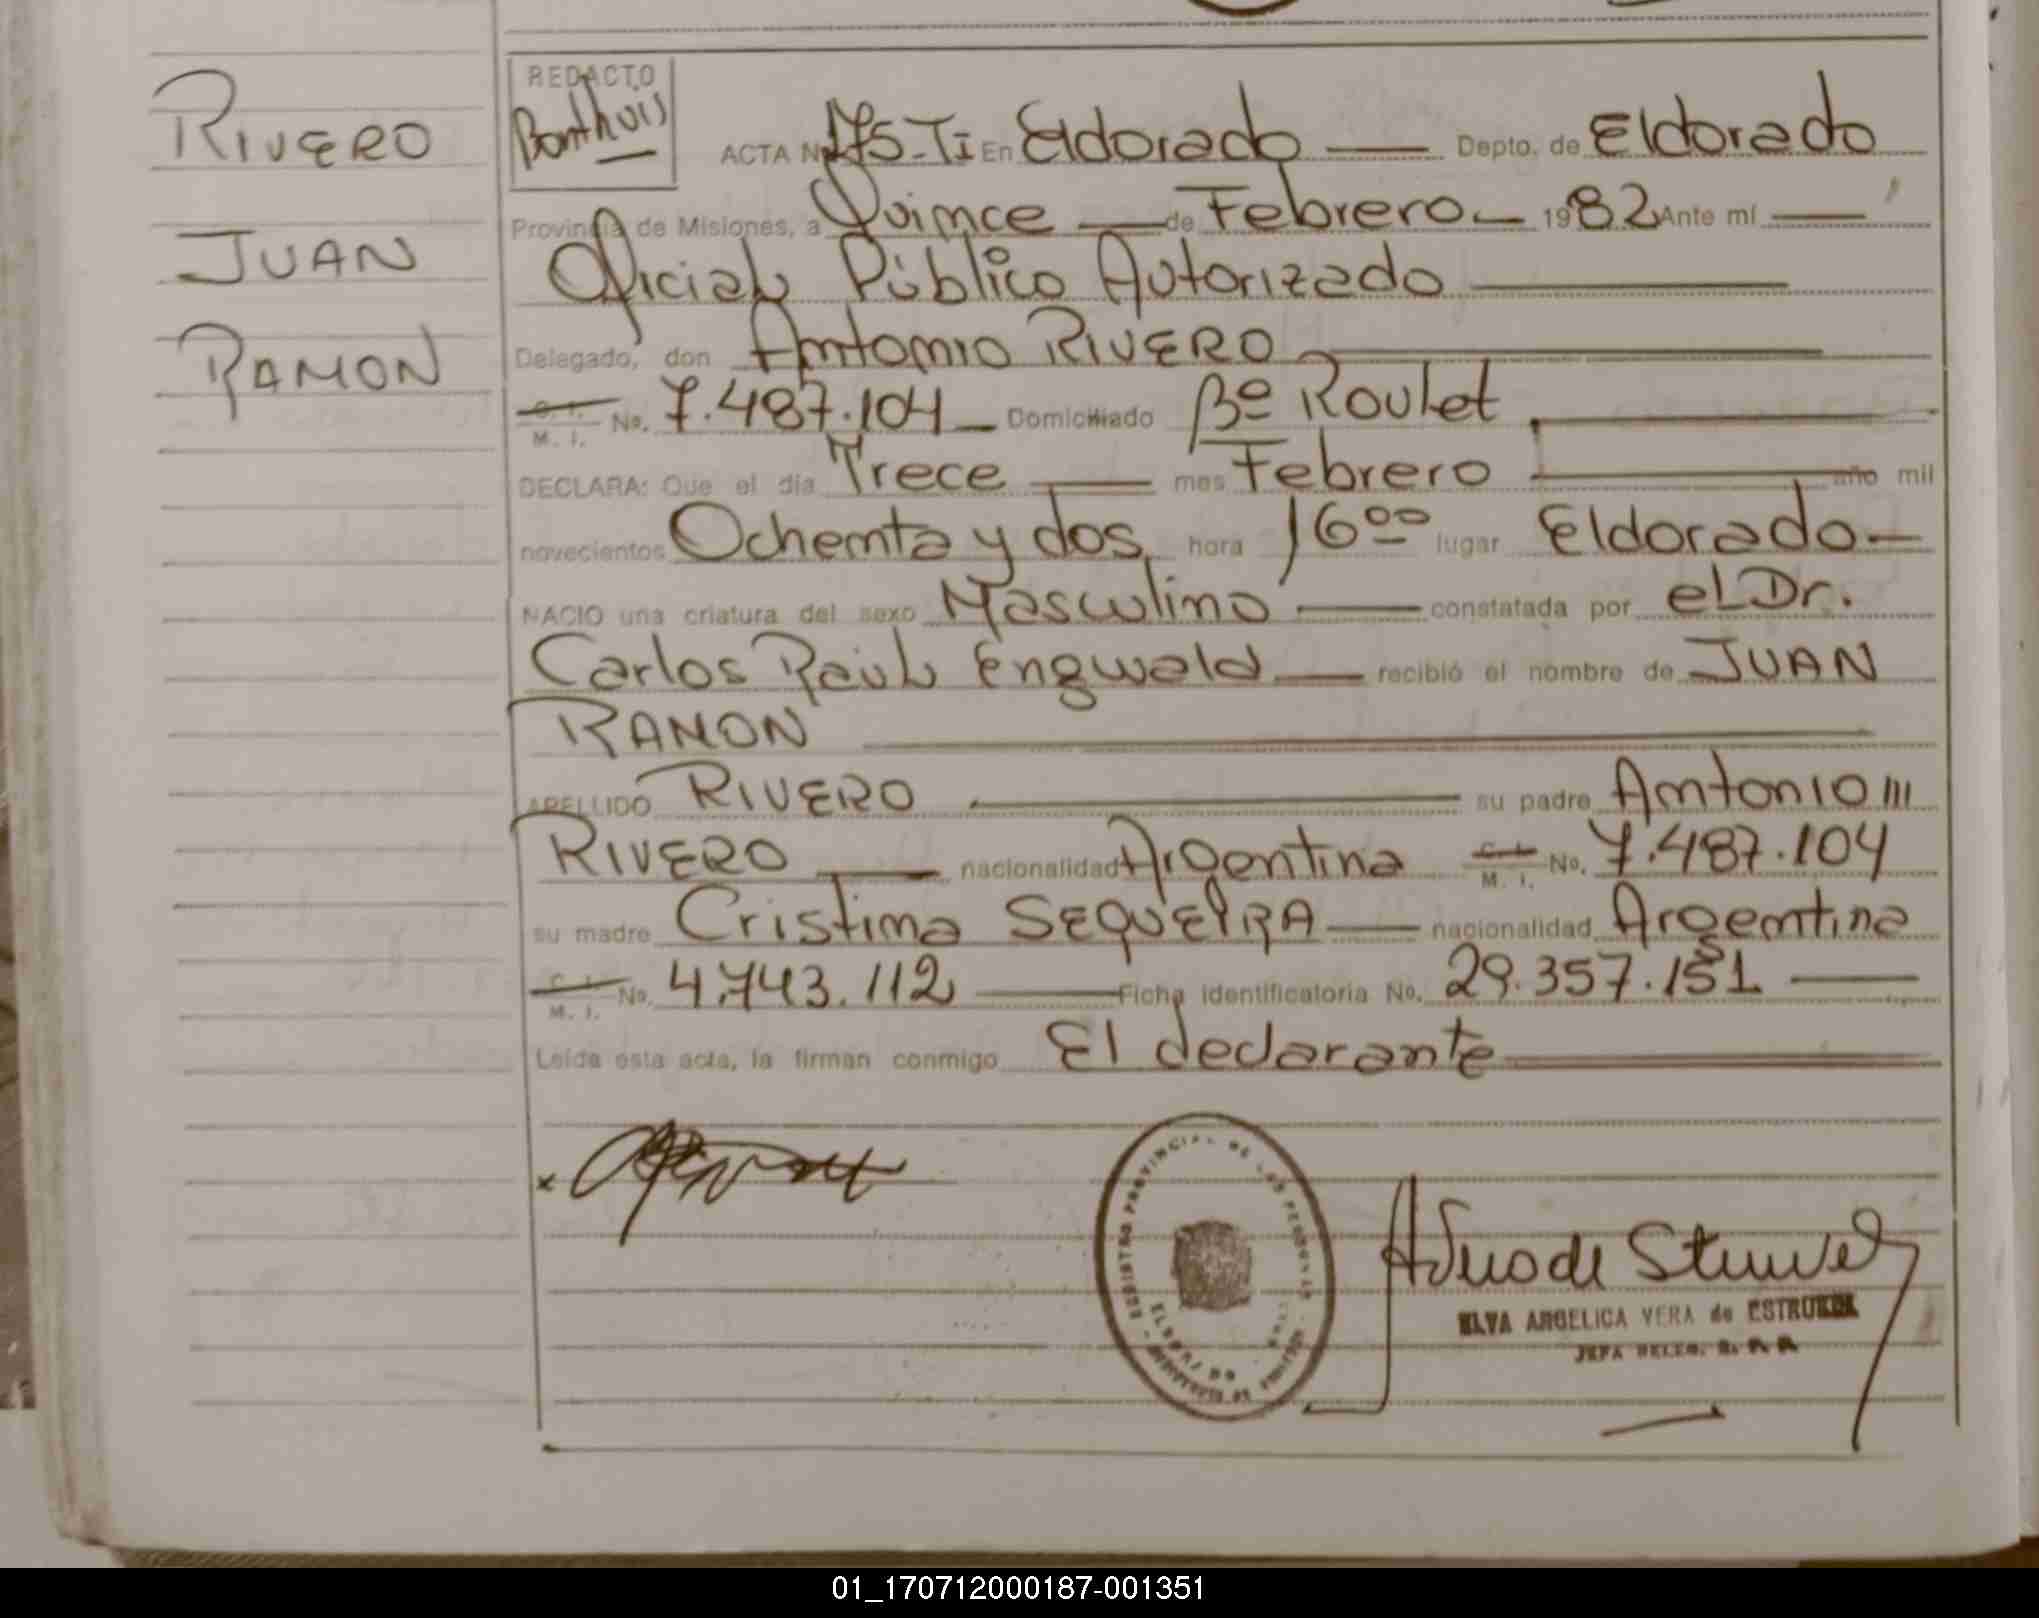 RIVERO
JUAN
RAMON
REDACTO
Bonthuis
ACTA Nº 175-TI En Eldorado — Depto. de Eldorado
Provincia de Misiones, a Quince — de Febrero — 1982 Ante mí —
Oficial Público Autorizado —
Delegado, don Antonio RIVERO —
C. I. M. I. No. 7.487.104 — Domiciliado Bº Roulet —
DECLARA: Que el día Trece — mes Febrero — año mil
novecientos Ochenta y dos, hora 16⁰⁰ lugar Eldorado —
NACIO una criatura del sexo Masculino — constatada por el Dr.
Carlos Raúl Engwald — recibió el nombre de JUAN
RAMON —
APELLIDO RIVERO — su padre Antonio
RIVERO — nacionalidad Argentina C. I. M. I. No. 7.487.104
su madre Cristina SEQUEIRA — nacionalidad Argentina
C. I. M. I. No. 4.743.112 — Ficha identificatoria No. 29.357.151 —
Leída esta acta, la firman conmigo El declarante —
REGISTRO PROVINCIAL DE LAS PERSONAS
ELVA ANGELICA VERA de ESTRUBEL
JEFA DELEG.
01_170712000187-001351